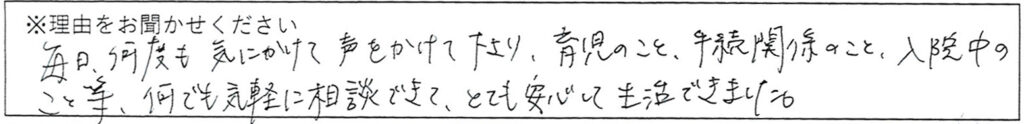 ※理由をお聞かせください
毎日、何度も気にかけて声をかけて下さり、育児のこと、手続関係のこと、入院中の
こと等、何でも気軽に相談できて、とても安心して生活できました。